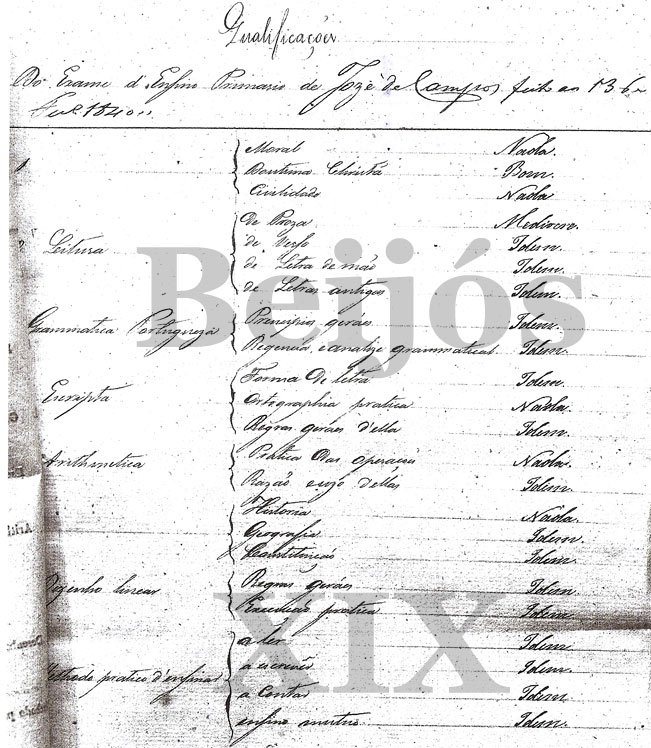 Qualificações
Do Exame d'Ensino Primario de Jozé de Campos feito ao 13 de
1840
Moral Nada.
Doutrina Christã Bom.
Civilidade Nada
Leitura
de Proza Mediocre.
de Verso Idem.
de Letra de mão Idem.
de Letras antigas Idem.
Beijós
Grammatica Portugueza
Principios geráes Idem.
Regencia e analize grammatical. Idem.
Escripta
Forma de letra Idem.
Ortographia pratica Nada.
Regras geráes d'ella Idem.
Arithmetica
Pratica das operações Nada.
Razão e uzo dellas Idem.
Historia Nada.
Geografia Idem.
Constituição Idem.
Dezenho linear
Regras geráes Idem.
Execução pratica Idem.
XIX
Methodo pratico d'ensinar
a ler Idem
a escrever Idem.
a Contar Idem
ensino mutuo. Idem.